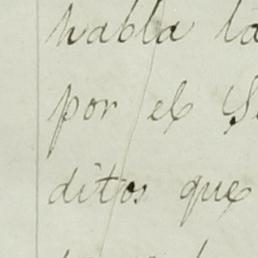 habla la
por el S
ditos que